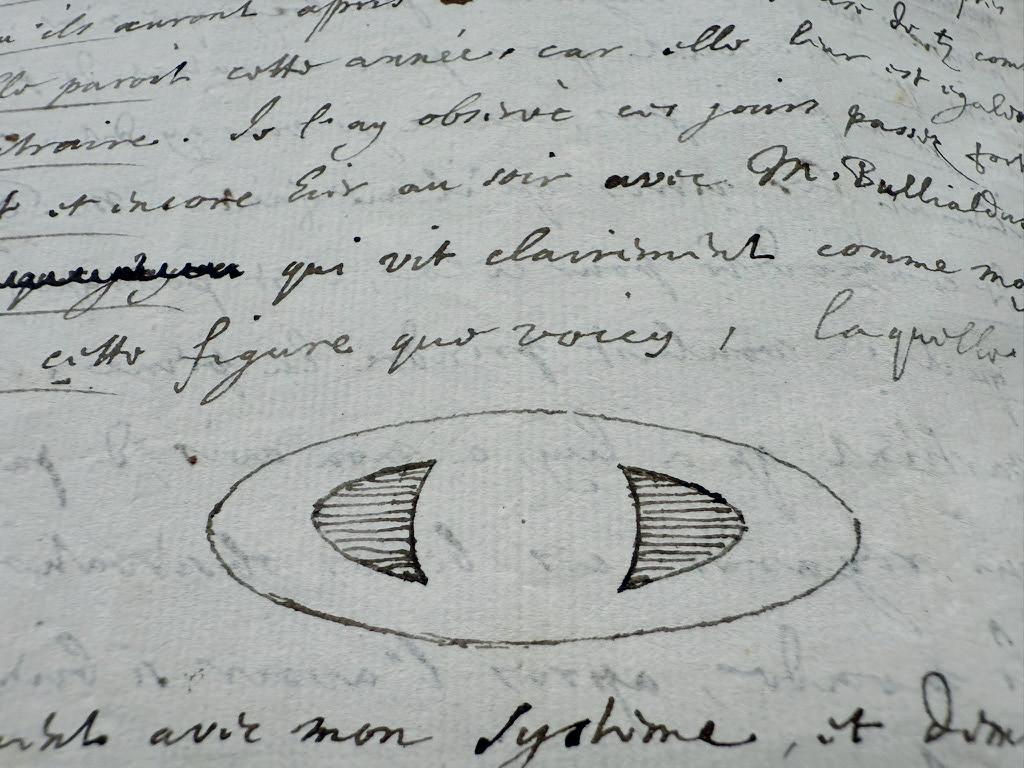 ils auront apres
paroit cette année, car elle leur est egalem
traire. Je l'ay observè ces jours passez fort
et encore hier au soir avec M. Bullialdus
qui vit clairement comme moy
cette figure que voicy, laquelle
avec mon systeme, et dim